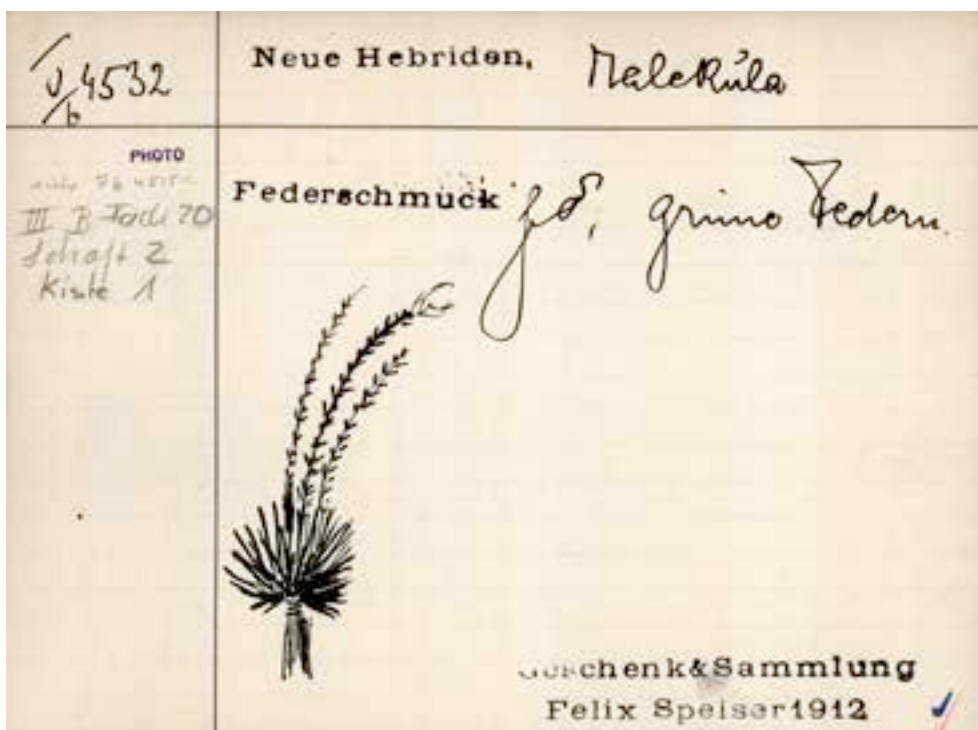 V/b 4532
Neue Hebriden, Malekúla
PHOTO
III B Fach 20
Schaft 2
Kiste 1
Federschmuck grüne Federn.
Geschenk&Sammlung
Felix Speiser 1912